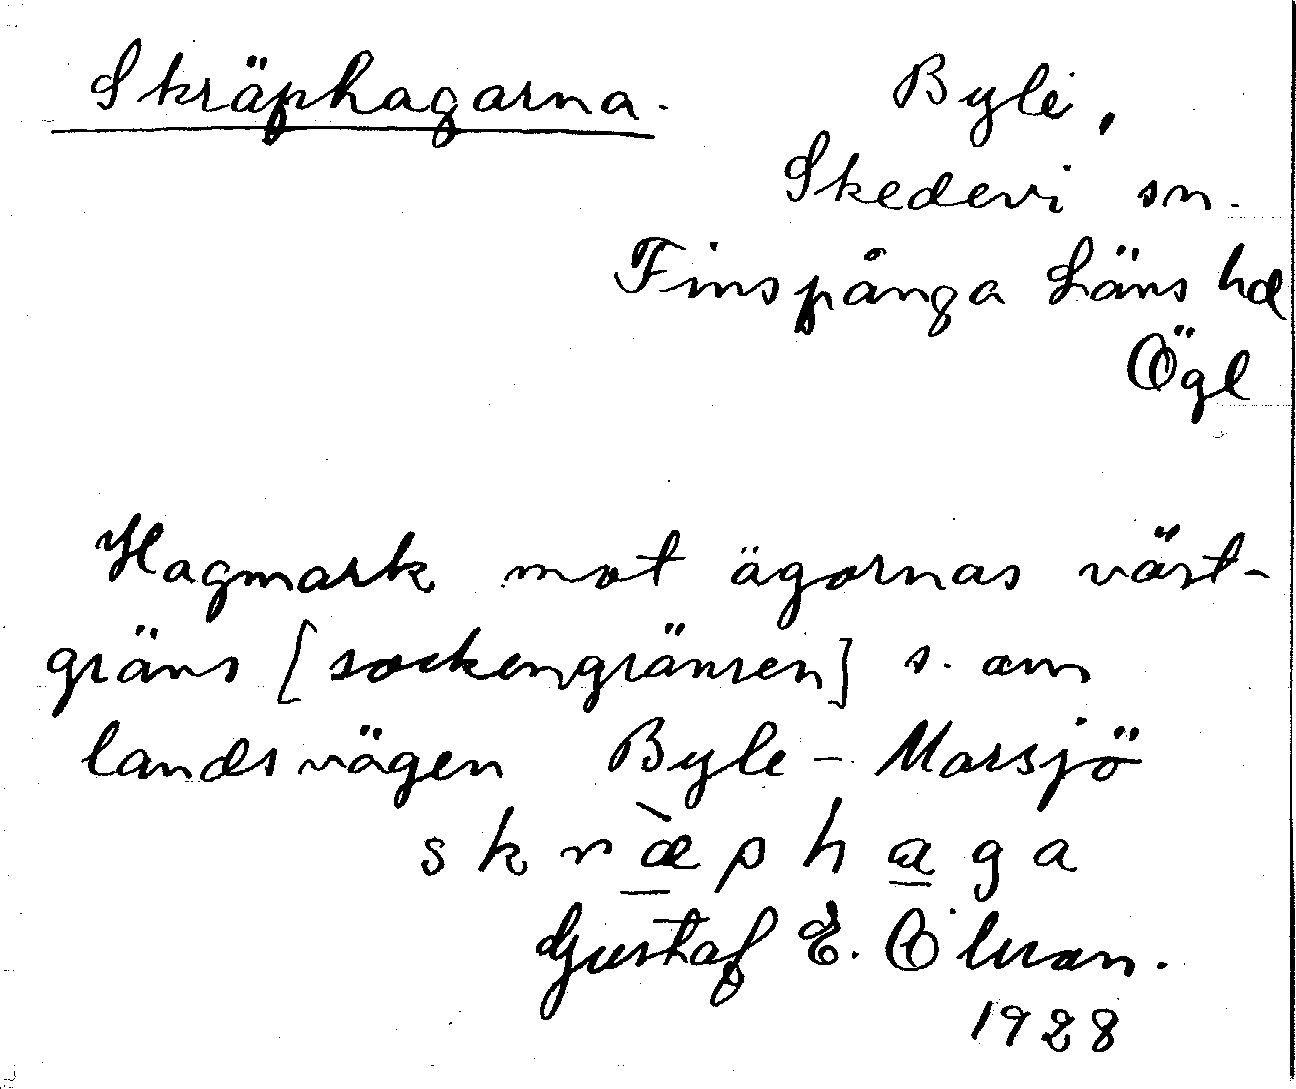 Skräphagarna.
Byle,
Skedevi sn.
Finspånga Läns hd
Ögl
Hagmark mot ägornas väst-
gräns [sockengränsen] s. om
landsvägen Byle - Marsjö
skræ̀phaga
Gustaf E.
1928